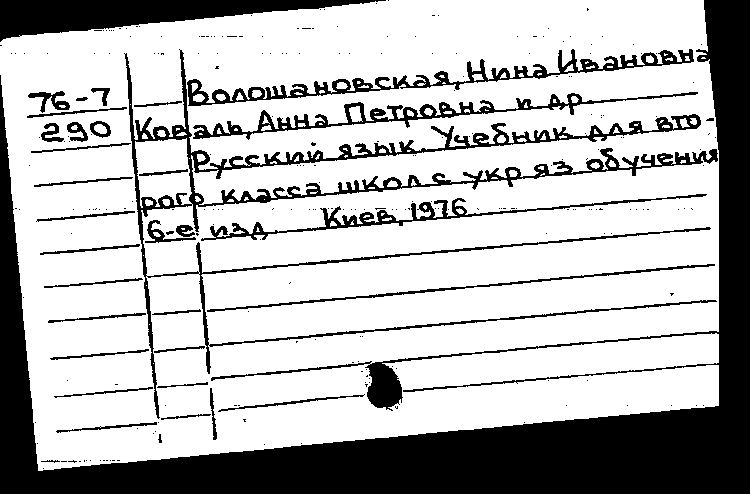 76-7 Волошановская, Нина Ивановна
290 Коваль, Анна Петровна и др.
Русский язык. Учебник для вто-
рого класса школ с укр яз обучения
6-е изд Киев, 1976